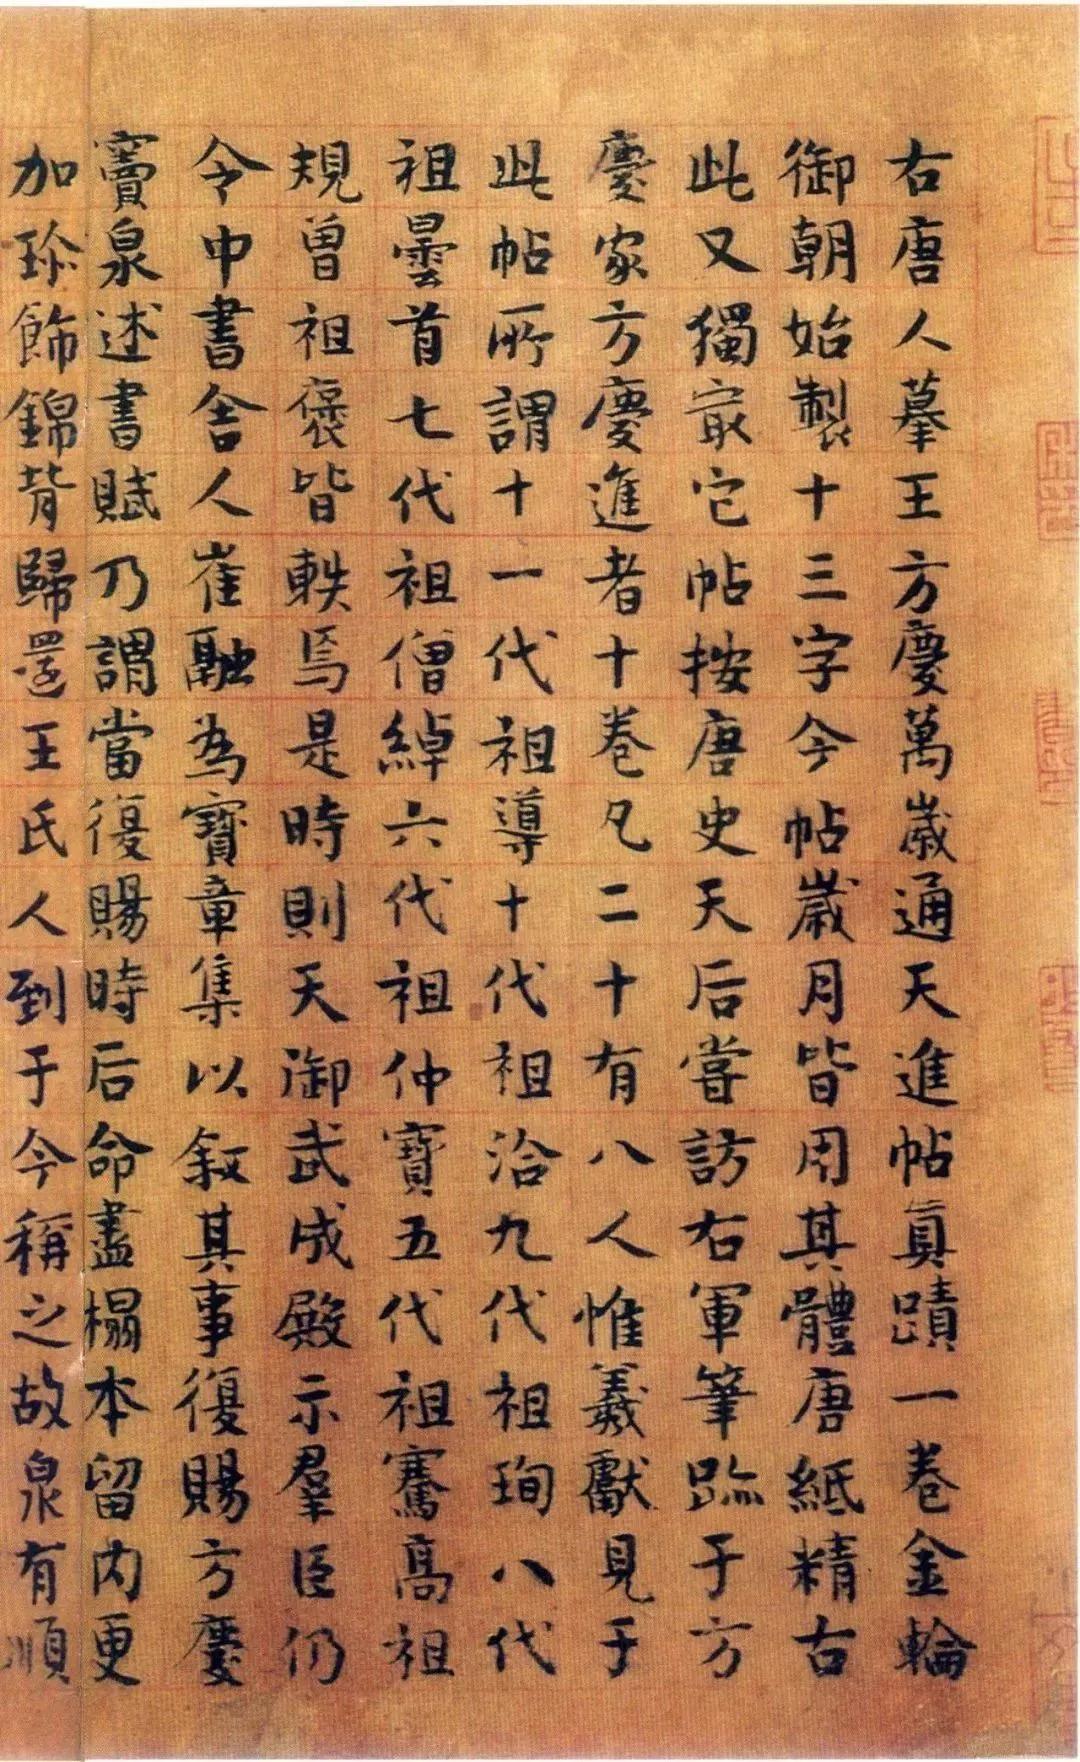 右唐人摹王方慶萬歲通天進帖真蹟一卷金輪
御朝始製十三字今帖歲月皆用其體唐紙精古
此又獨冣它帖按唐史天后嘗訪右軍筆跡于方
慶家方慶進者十卷凡二十有八人惟羲獻見于
此帖所謂十一代祖導十代祖洽九代祖珣八代
祖曇首七代祖僧綽六代祖仲寶五代祖騫高祖
規曾祖褒皆軼焉是時則天御武成殿示羣臣仍
令中書舍人崔融為寶章集以叙其事復賜方慶
竇泉述書賦乃謂當復賜時后命盡榻本留內更
加珎飾錦背歸還王氏人到于今稱之故泉有順